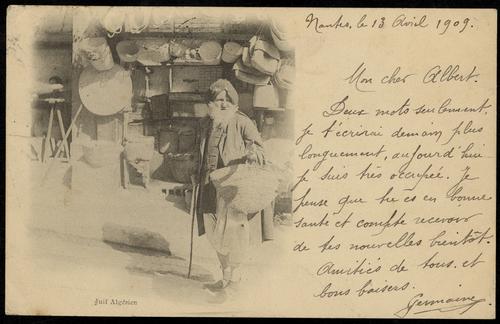 Nantes, le 13 Avril 1909.
Mon cher Albert.
Deux mots seulement.
je t'écrirai demain plus
longuement, aujourd'hui
je suis très occupée. Je
pense que tu es en bonne
santé et compte recevoir
de tes nouvelles bientôt.
Amitiés de tous, et
bons baisers.
Germaine
Juif Algérien